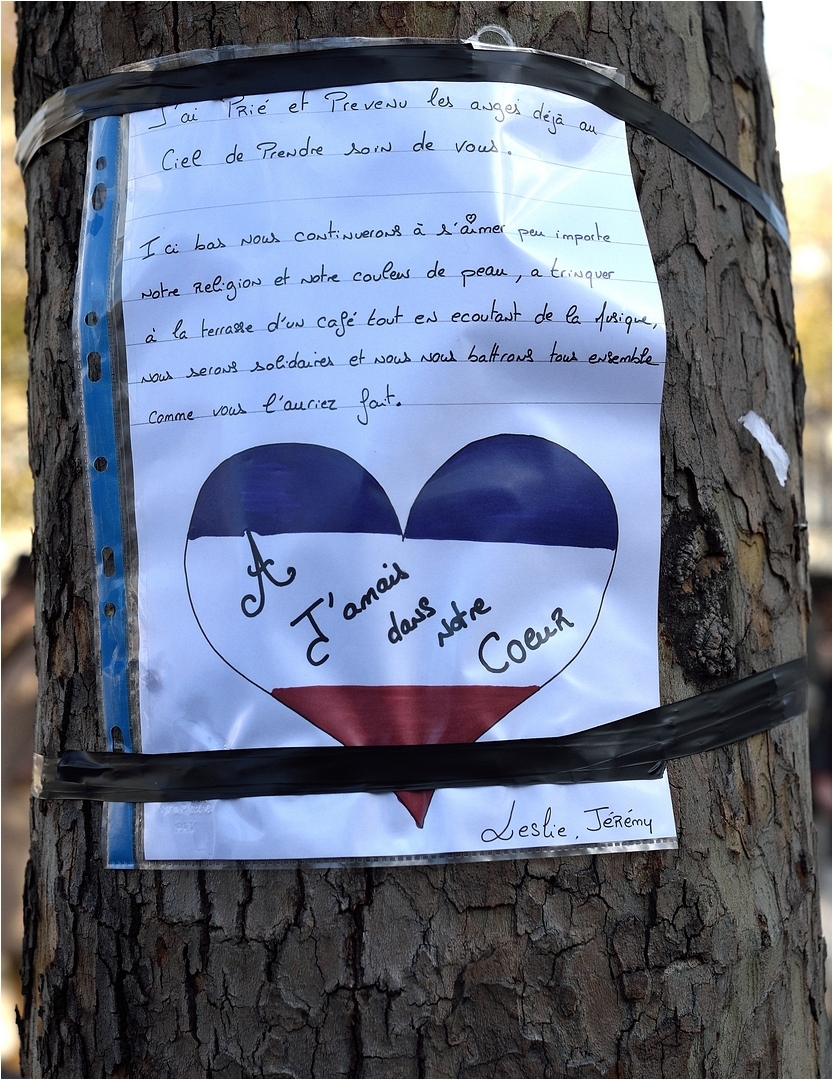 J'ai Prié et Prevenu les anges déjà au
Ciel de Prendre soin de vous.
Ici bas nous continuerons à s'aimer peu importe
notre Religion et notre couleur de peau, a trinquer
à la terrasse d'un café tout en ecoutant de la Musique,
nous serons solidaires et nous nous battrons tous ensemble
comme vous l'auriez fait.
A
J'amais
dans
notre
Coeur
Leslie, Jérémy